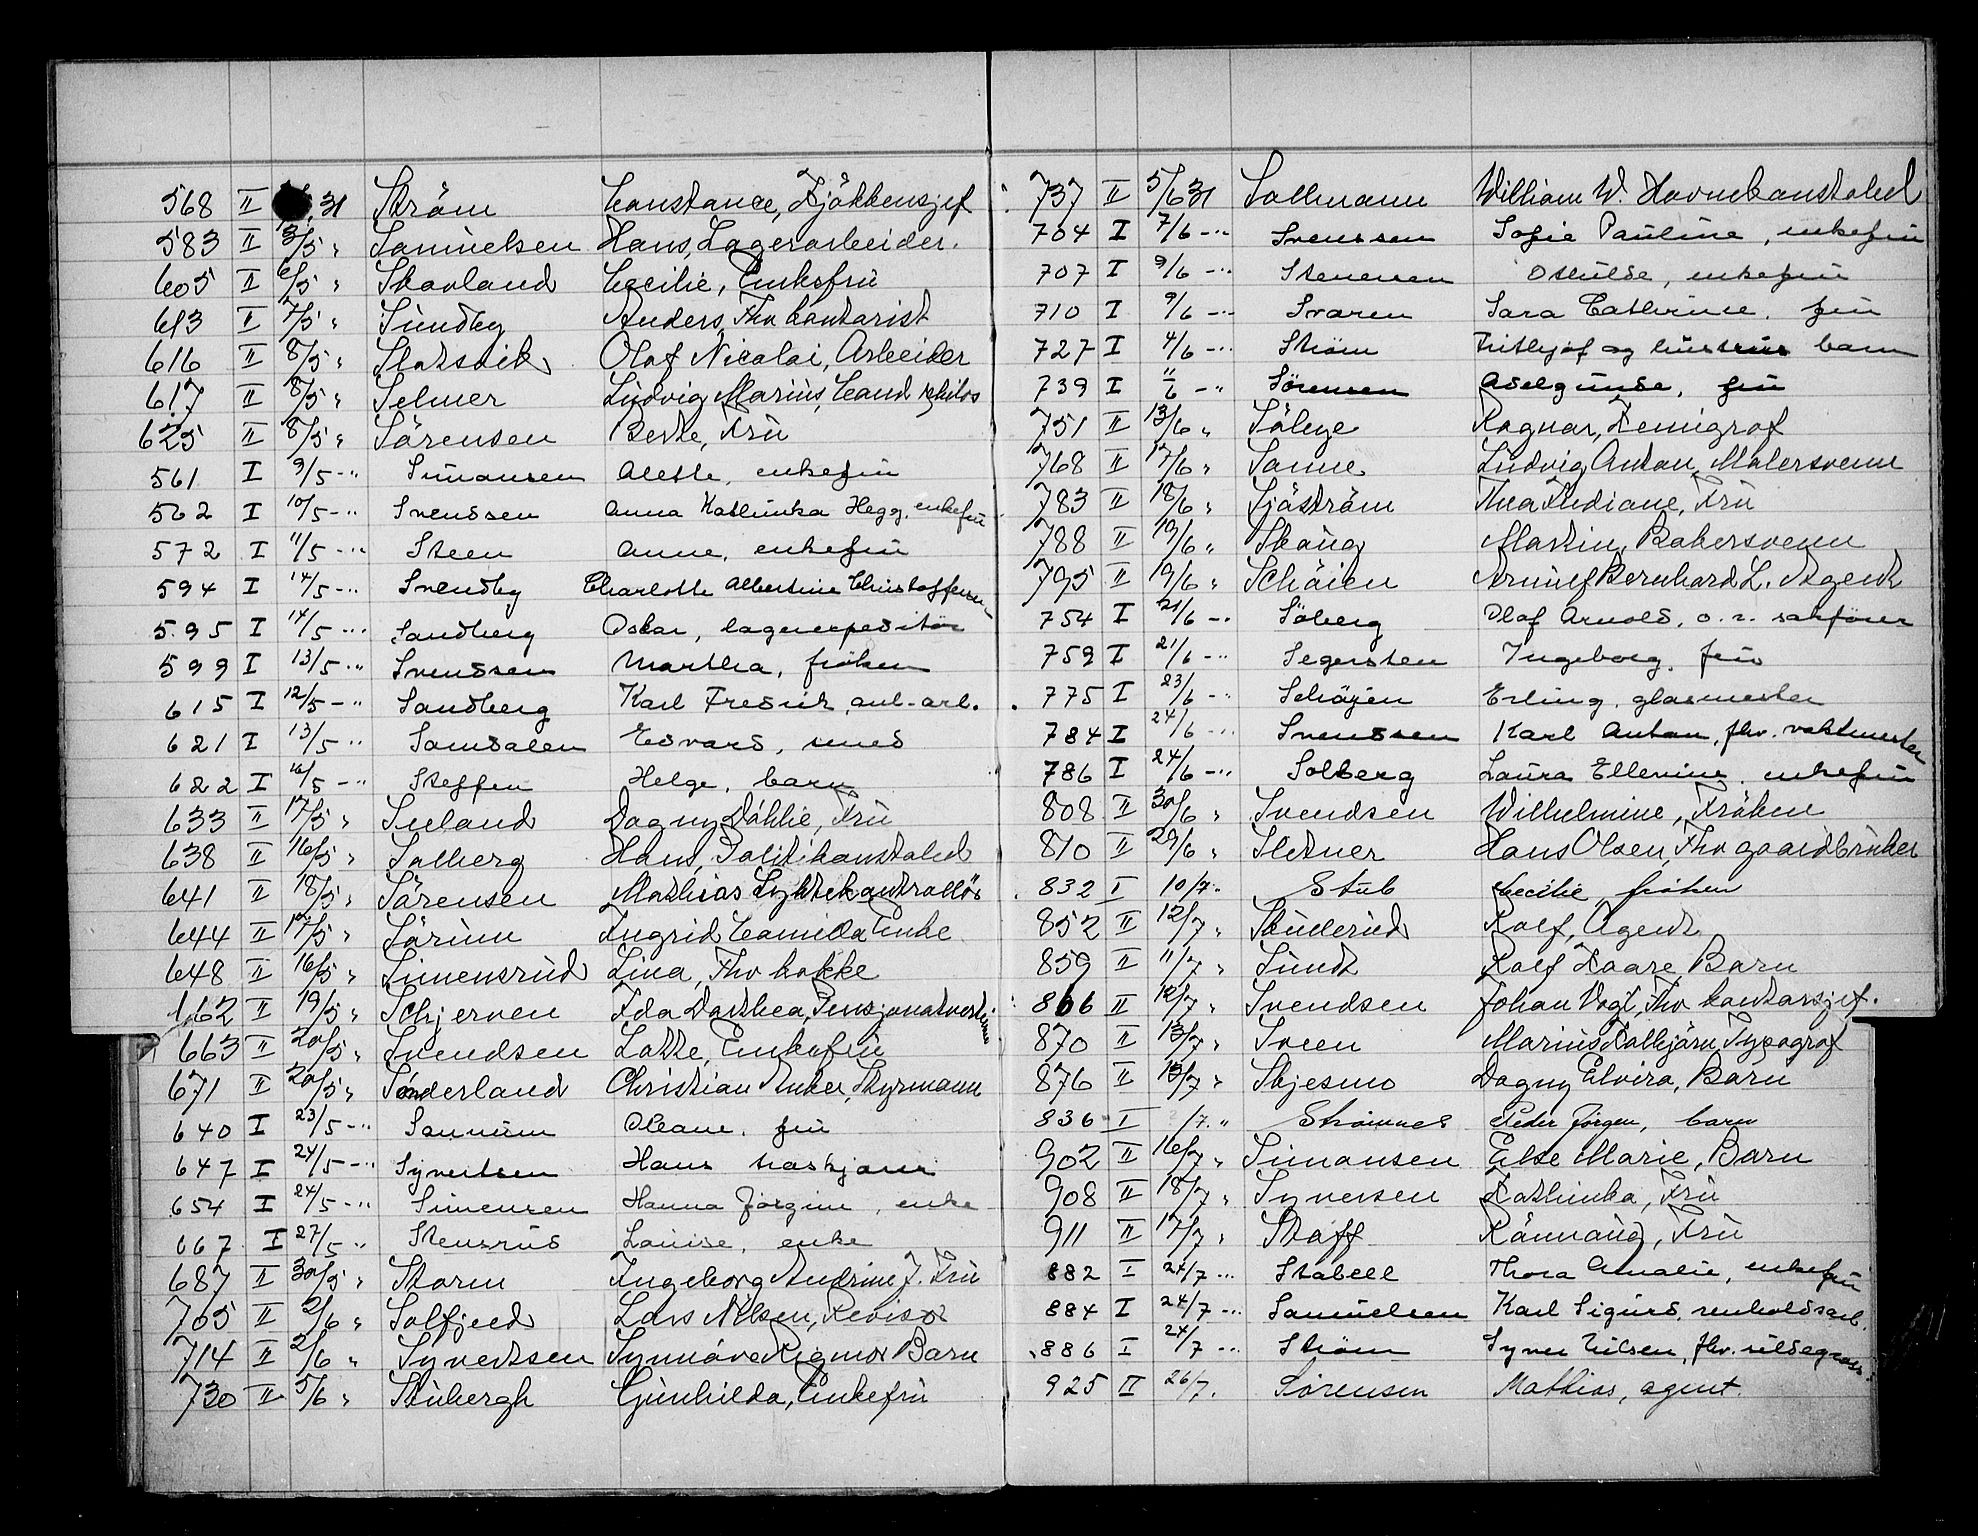 568 II 31 Strøm Constance, Kjøkkensjef
583 II 3/5 " Samuelsen Hans, Lagerarbeider.
605 II 6/5 " Skavland Cecilie, Enkefru
613 II 7/5 " Sundby Anders, Fhv kontorist
616 II 8/5 " Slotsvik Olaf Nicolai, Arbeider
617 II 8/5 " Selmer Ludvig Marius, Cand philos
625 II 8/5 " Sørensen Berte, Fru
561 I 9/5 -" Simonsen Alette, enkefru
562 I 10/5 -" Svendsen Anna Kathinka Hegg, enkefru
572 I 11/5 -" Steen Anne, enkefru
594 I 14/5 -" Svendby Charlotte Albertine Christoffersen
595 I 14/5 -" Sandberg Oskar, lagerexpeditør
599 I 13/5 -" Svendsen Martha, frøken
615 I 12/5 -" Sandberg Karl Fredrik, anl-arb.
621 I 13/5 -" Samdalen Edvard, smed
622 I 16/5 -" Steffen Helge, barn
633 II 17/5 " Sneland Dagny Dahlie, Fru
638 II 16/5 " Solberg Hans, Politikonstabel
641 II 18/5 " Sørensen Mathias Lyktekontrollør
644 II 17/5 " Sørum Ingrid Camilla Enke
648 II 16/5 " Simensrud Lina, Fhv kokke
662 II 19/5 " Schjerven Ida Dorthea, Pensjonatvertinne
663 II 20/5 " Svendsen Lotte, Enkefru
671 II 20/5 " Sønderland Christian Anker, Styrmann
640 I 23/5 -" Sannum Oleane, fru
647 I 24/5 -" Syvertsen Hans, traskjører
654 I 24/5 -" Simensen Hanna Jørgine, enke
667 I 27/5 " Stensrud Louise, enke
687 II 30/5 " Storm Ingeborg Andrine J. Fru
705 II 2/6 " Solfjeld Lars Nilsen, Revisor
714 II 2/6 " Syvertsen Synnøve Rigmor Barn
730 II 5/6 " Stubergh Gunhilda, Enkefru
737 II 5/6 31 Sollmann William W. Havnekonstabel
704 I 7/6 -" Svendsen Sofie Pauline, enkefru
707 I 9/6 -" Stenersen Othilde, enkefru
710 I 9/6 -" Svaren Sara Cathrine, fru
727 I 4/6 -" Strøm Frithjof og hustrus barn
739 I 11/6 -" Sørensen Adelgunde, fru
751 II 13/6 " Sølvge Ragnar, Kemigraf
768 II 17/6 " Sanne Ludvig Anton, Malersvenn
783 II 18/6 " Sjøstrøm Thea Frediane, Fru
788 II 19/6 " Skaug Martin, Bakersvenn
795 II 19/6 " Schøien Arnulf Bernhard L. Agent
754 I 21/6 -" Søberg Olaf Arnold, o.r. sakfører
759 I 21/6 -" Segersten Ingeborg, fru
775 I 23/6 -" Schøyen Erling, glasmester
784 I 24/6 -" Svendsen Karl Anton, fhv. vaktmester
786 I 24/6 -" Solberg Laura Ellevine, enkefru
808 II 30/6 " Svendsen Wilhelmine, Frøken
810 II 29/6 " Sletner Hans Olsen, Fhv gaardbruker
832 I 10/7. Stub Cecilie frøken
852 II 12/7 " Skuderud Rolf, Agent
859 II 11/7 " Sundt Rolf Kaare Barn
866 II 12/7 " Svendsen Johan Vogt, Fhv kontorsjef.
870 II 13/7 " Sveen Marius Kolbjørn, Typograf
876 II 13/7 " Skjesmo Dagny Elvira, Barn
836 I /7. " Strømnes Peder Jørgen, barn
902 II 16/7 " Simonsen Else Marie, Barn
908 II 18/7 " Syversen Kathinka, Fru
911 II 17/7 " Staff Rønnaug, Fru
882 I 24/7 -" Stabell Thora Amalie, enkefru
884 I 24/7 -" Samuelsen Karl Sigurd, renholdsarb.
886 I 24/7 -" Strøm Syver Nilsen, fhv. sildegross.
925 II 26/7. Sørensen Mathias, agent.